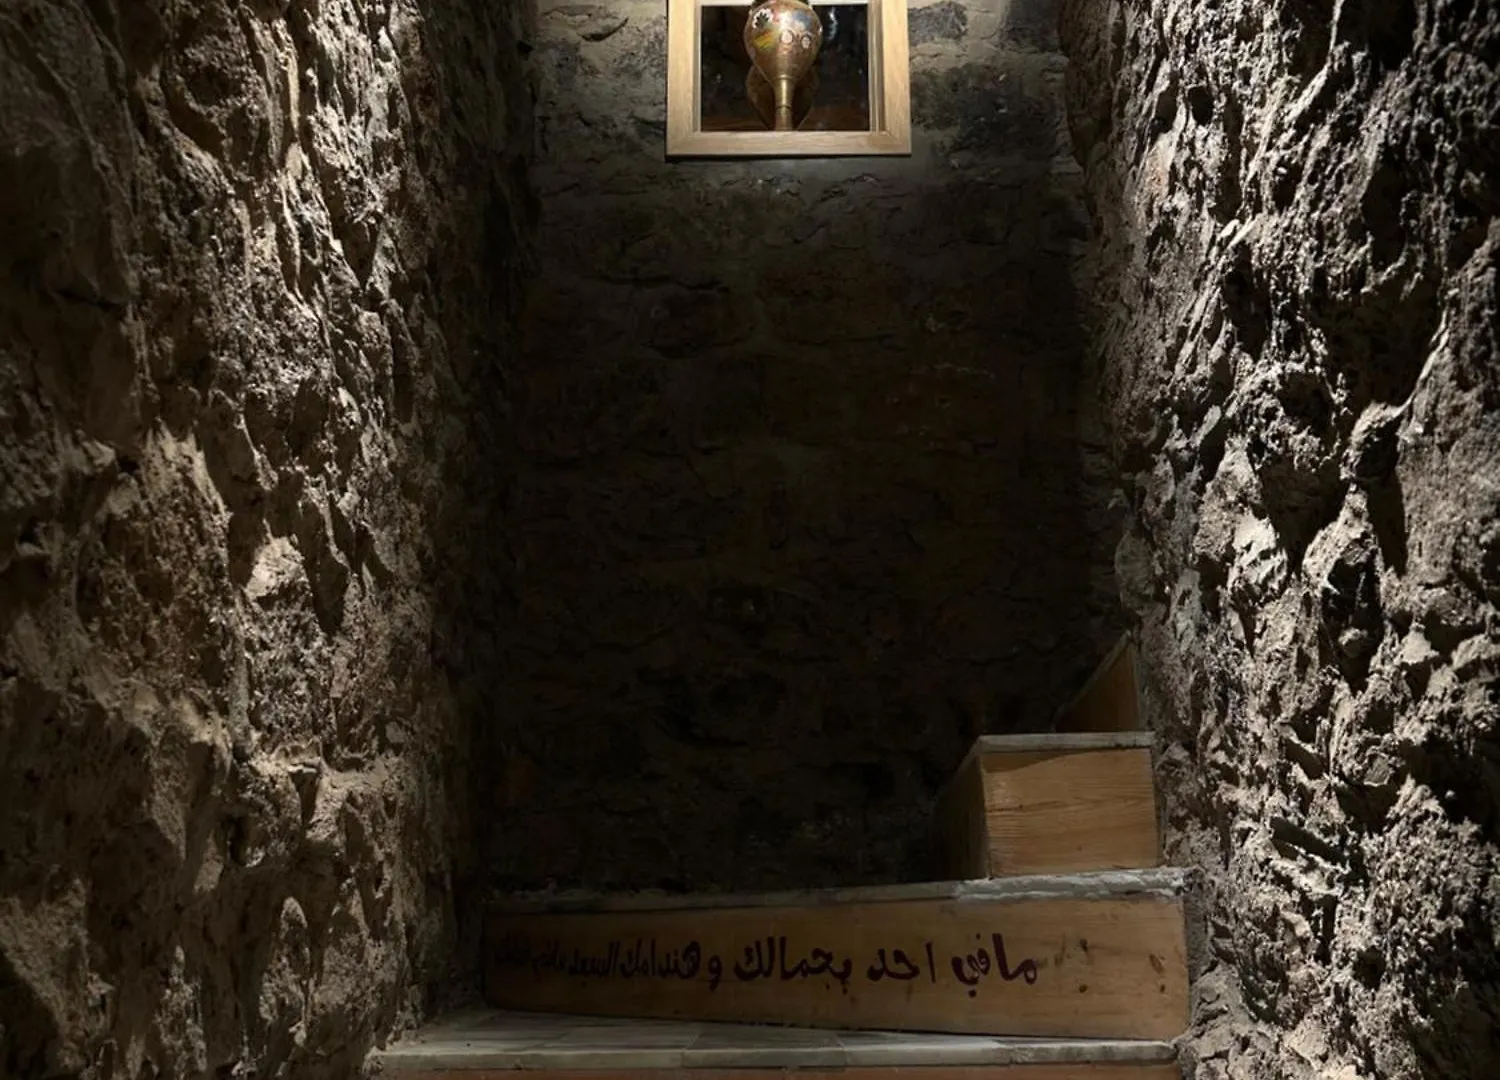 مافي احد بجمالك و هندامك السعد